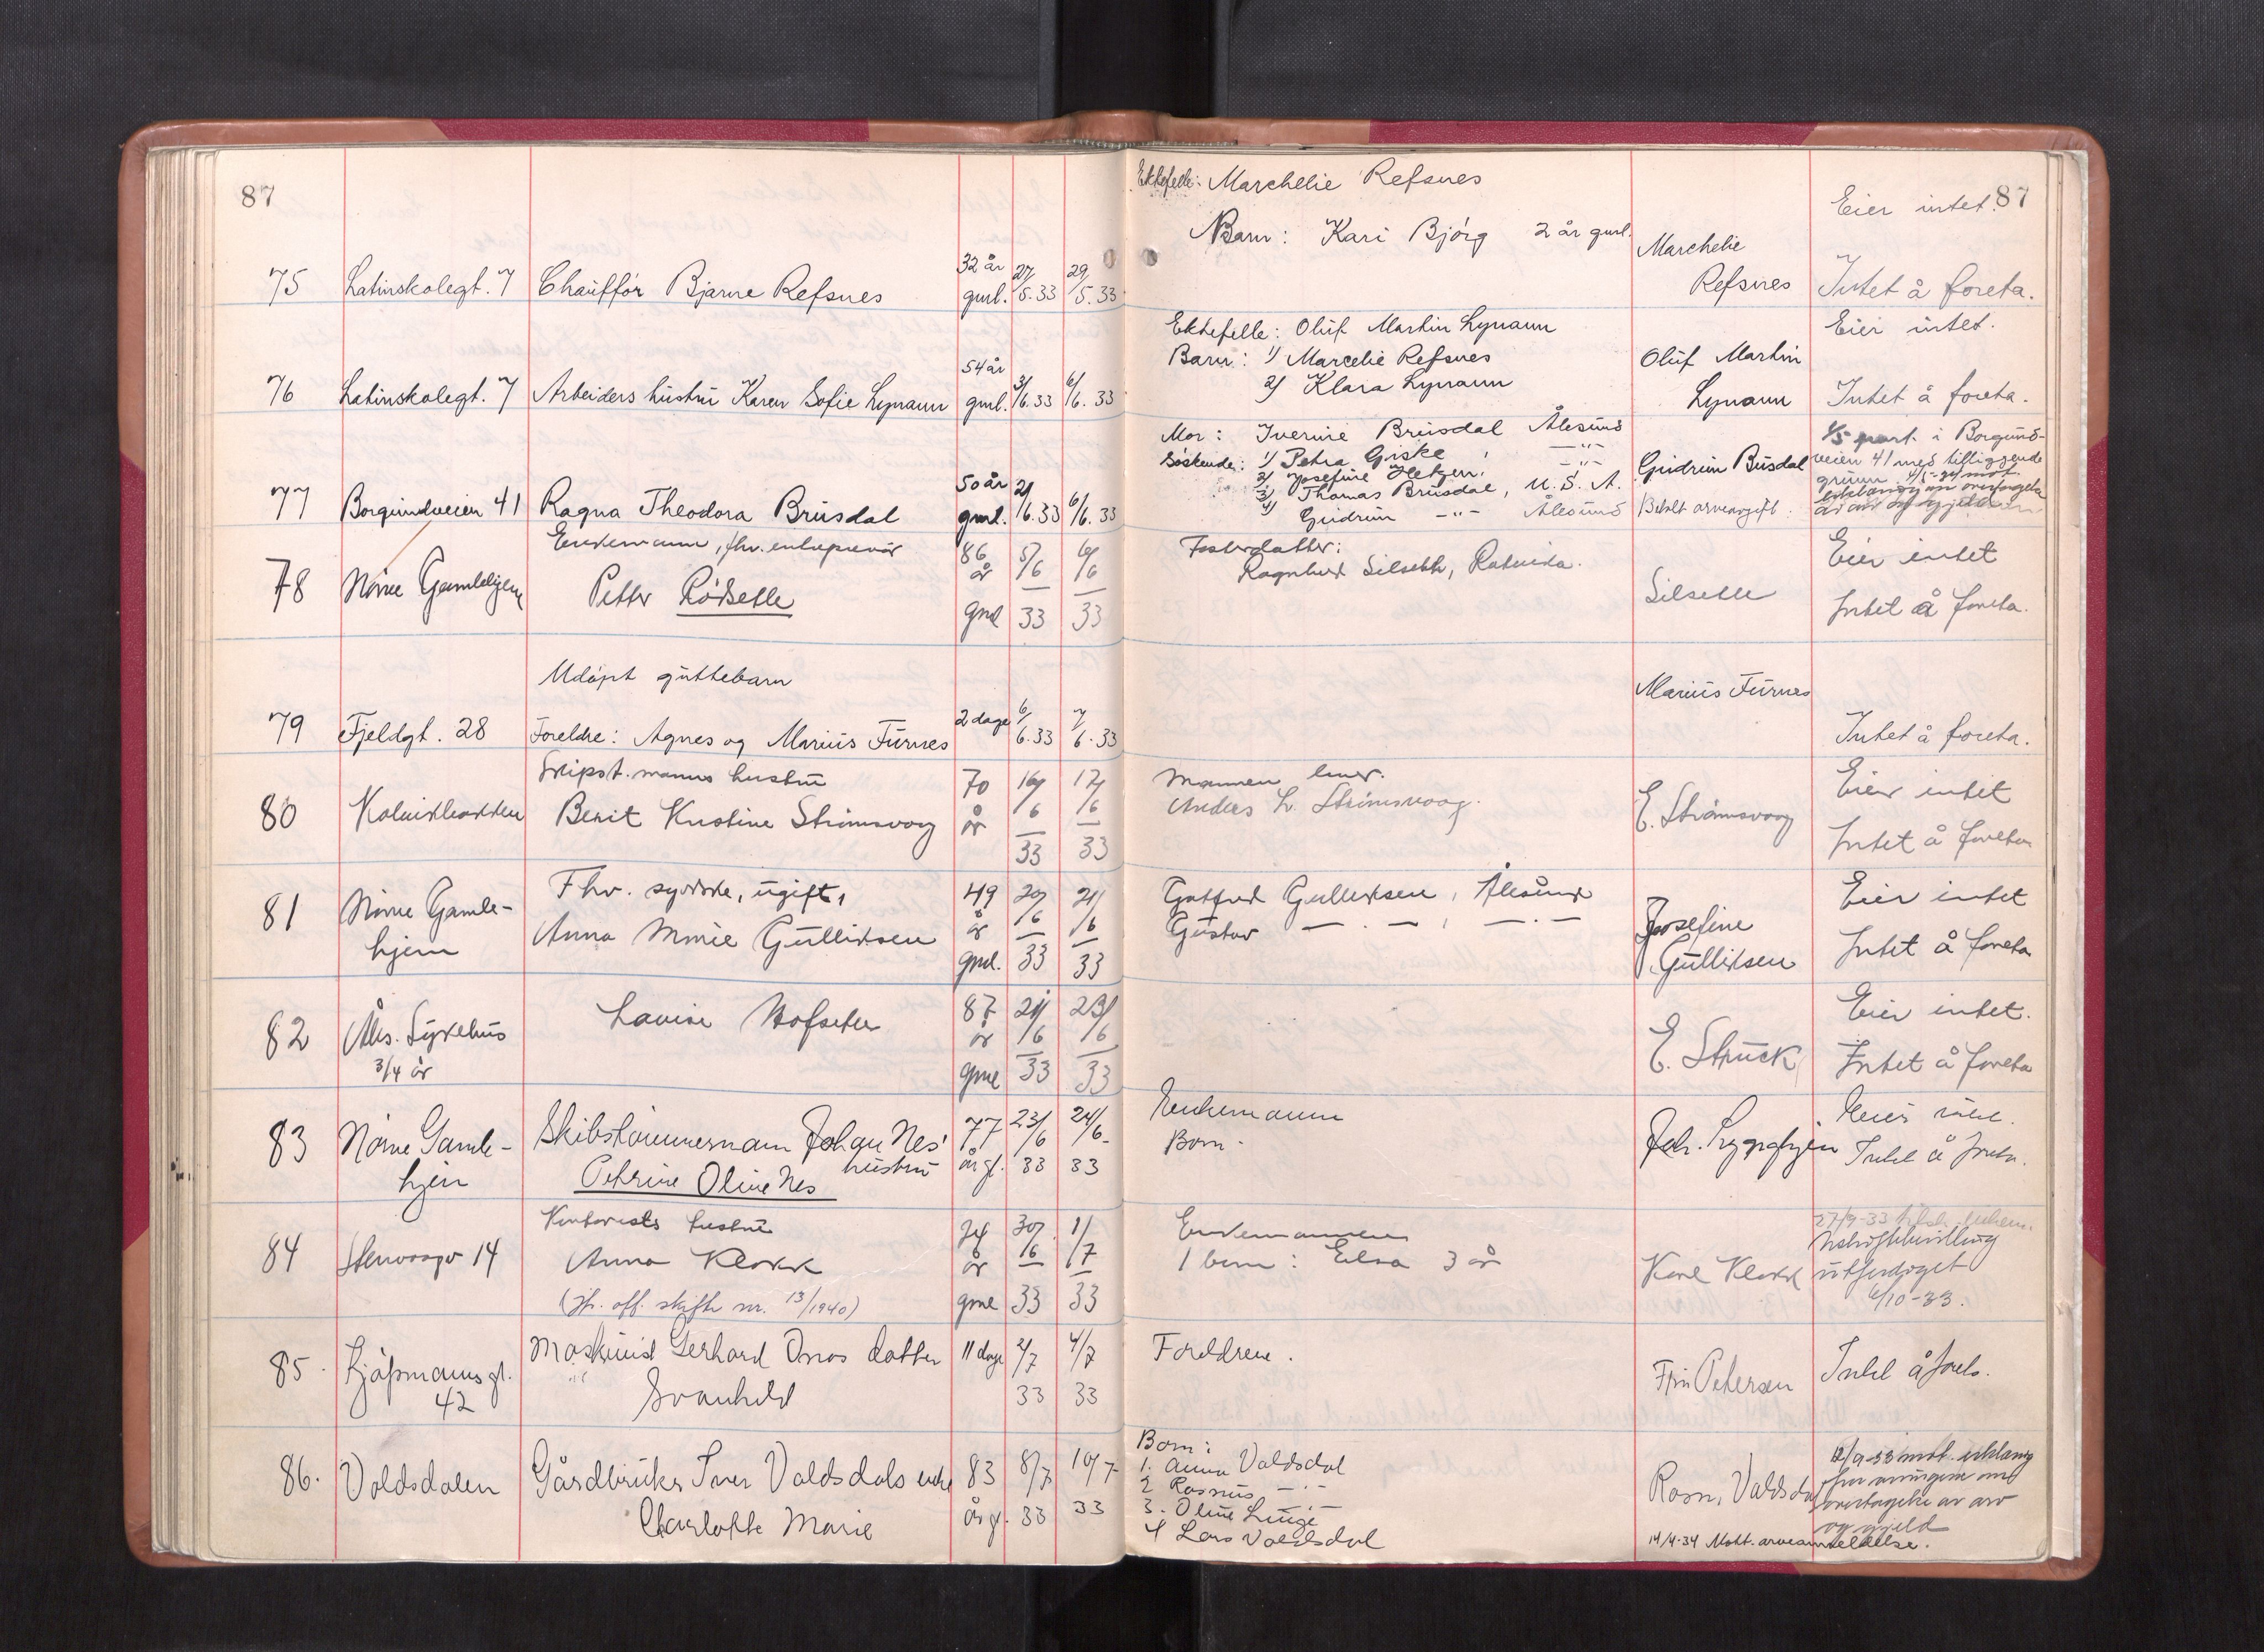 87
75 Latinskolegt. 7 Chauffør Bjarne Refsnes 32 år gml. 27/5.33 29/5.33
76 Latinskolegt. 7 Arbeiders hustru Karen Sofie Lynaun 54 år gml. 3/6.33 6/6.33
77 Borgundveien 41 Ragna Theodora Brusdal 50 år gml. 2/6.33 6/6.33
78 Nørve Gamlehjem Enkemann, fhv. entreprenør
Petter Rödsette 86 år gml 5/6 33 6/6 33
79 Fjeldgt. 28 Udöpt guttebarn
Foreldre: Agnes og Marius Furnes 2 dage 6/6.33 7/6.33
80 Skipst.manns hustru
Berit Kristine Strömsvåg 70 år 16/6 33 17/6 33
81 Nørve Gamle-
hjem
Fhv. syerske, ugift,
Anna Marie Gulliksen 49 år gml. 20/6 33 21/6 33
82 Åles. Sykehus
3/4 år
Lovise Hofseter 87 år gml 21/6 33 23/6 33
83 Nørve Gamle-
hjem
Skibstömmermann Johan Nes'
hustru
Petrine Oline Nes 77 år gl. 23/6 33 24/6 33
84 Stenvaagv 14 Kontorists hustru
Anna Klokk
(Jfr. off. skifte nr. 13/1940) 34 år gml 30/6 33 1/7 33
85. Kjöpmannsgt.
42
Maskinist Gerhard Onos datter
Svanhild 11 dage 2/7 33 4/7 33
86. Voldsdalen Gårdbruker Iver Valdsdals enke
Charlotte Marie 83 år gl. 8/7 33 10/7 33
87
Ektefelle: Marchelie Refsnes
Barn: Kari Bjørg 2 år gml.
Marchelie
Refsnes
Eier intet.
Intet å foreta.
Ektefelle: Oluf Martin Lynaun
Barn: 1/ Marcelie Refsnes
2/ Klara Lynaun
Oluf Martin
Lynaun
Eier intet.
Intet å foreta.
Mor: Iverine Brusdal Ålesund
Søskende: 1/ Petra Giske, —"—
2/ Josefine Hetzen, —"—
3/ Thomas Brusdal, U.S.A.
4/ Gudrun —"— Ålesund
Gudrun Busdal
Betalt arveavgift.
1/5 part i Borgund-
veien 41 med tilliggende
grunn
Fosterdatter:
Ragnhild Silseth,
Silseth
Eier intet
Intet å foreta.
Marius Furnes
Intet å foreta.
Mannen lever.
Anders L. Strømsvaag.
E. Strömsvaag
Eier intet
Intet å foreta
Gotfred Gulliksen, Ålesund
Gustav — . — , — . —
Josefine
Gulliksen
Eier intet
Intet å foreta
E. Struck
Eier intet.
Intet å foreta
Enkemann
Barn.
Intet å foreta.
Enkemannen
1 barn: Elsa 3 år
Karl Klokk
27/9-33
utferdiget
6/10-33.
Foreldrene.
Fru Petersen
Intet å foreta.
Barn:
1. Anna Valdsdal
2 Rasmus — . —
3. Oline Linge
4 Lars Valdsdal
Rasm. Valdsdal
12/9-33 mot. erklæring
fra arvingene om
overtagelse av arv
og gjeld
14/4-34 Mott. arveanmeldelse.